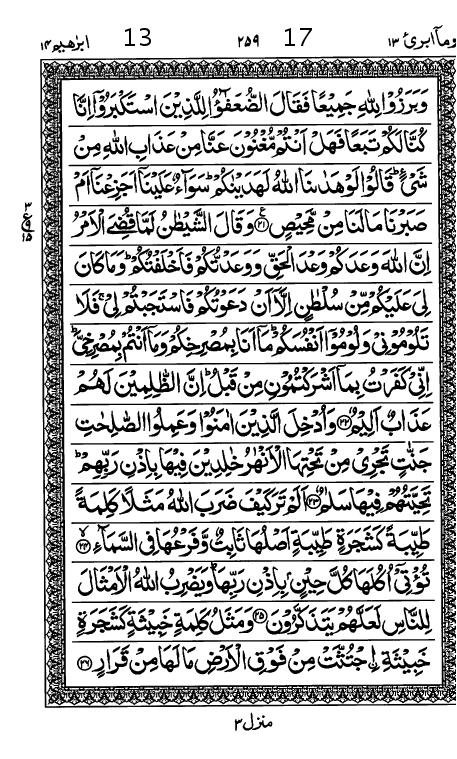 وما ابرئ ١٣ 17 ٢٥٩ 13 ابرٰهيم ١٤
وَبَرَزُوْا لِلّٰهِ جَمِيْعًا فَقَالَ الضُّعَفٰٓؤُا لِلَّذِيْنَ اسْتَكْبَرُوْٓا اِنَّا
كُنَّا لَكُمْ تَبَعًا فَهَلْ اَنْتُمْ مُّغْنُوْنَ عَنَّا مِنْ عَذَابِ اللّٰهِ مِنْ
شَيْءٍ ؕ قَالُوْا لَوْ هَدٰىنَا اللّٰهُ لَهَدَيْنٰكُمْ ؕ سَوَآءٌ عَلَيْنَآ اَجَزِعْنَآ اَمْ
صَبَرْنَا مَا لَنَا مِنْ مَّحِيْصٍ ﴿٢١﴾ وَقَالَ الشَّيْطٰنُ لَمَّا قُضِيَ الْاَمْرُ
اِنَّ اللّٰهَ وَعَدَكُمْ وَعْدَ الْحَقِّ وَوَعَدْتُّكُمْ فَاَخْلَفْتُكُمْ ؕ وَمَا كَانَ
لِيَ عَلَيْكُمْ مِّنْ سُلْطٰنٍ اِلَّآ اَنْ دَعَوْتُكُمْ فَاسْتَجَبْتُمْ لِيْ ۚ فَلَا
تَلُوْمُوْنِيْ وَلُوْمُوْٓا اَنْفُسَكُمْ ؕ مَآ اَنَا بِمُصْرِخِكُمْ وَمَآ اَنْتُمْ بِمُصْرِخِيَّ ؕ
اِنِّيْ كَفَرْتُ بِمَآ اَشْرَكْتُمُوْنِ مِنْ قَبْلُ ؕ اِنَّ الظّٰلِمِيْنَ لَهُمْ
عَذَابٌ اَلِيْمٌ ﴿٢٢﴾ وَاُدْخِلَ الَّذِيْنَ اٰمَنُوْا وَعَمِلُوا الصّٰلِحٰتِ
جَنّٰتٍ تَجْرِيْ مِنْ تَحْتِهَا الْاَنْهٰرُ خٰلِدِيْنَ فِيْهَا بِاِذْنِ رَبِّهِمْ ؕ
تَحِيَّتُهُمْ فِيْهَا سَلٰمٌ ﴿٢٣﴾ اَلَمْ تَرَ كَيْفَ ضَرَبَ اللّٰهُ مَثَلًا كَلِمَةً
طَيِّبَةً كَشَجَرَةٍ طَيِّبَةٍ اَصْلُهَا ثَابِتٌ وَّفَرْعُهَا فِي السَّمَآءِ ﴿٢٤﴾
تُؤْتِيْٓ اُكُلَهَا كُلَّ حِيْنٍۭ بِاِذْنِ رَبِّهَا ؕ وَيَضْرِبُ اللّٰهُ الْاَمْثَالَ
لِلنَّاسِ لَعَلَّهُمْ يَتَذَكَّرُوْنَ ﴿٢٥﴾ وَمَثَلُ كَلِمَةٍ خَبِيْثَةٍ كَشَجَرَةٍ
خَبِيْثَةِ اِۨجْتُثَّتْ مِنْ فَوْقِ الْاَرْضِ مَا لَهَا مِنْ قَرَارٍ ﴿٢٦﴾
منزل ٣